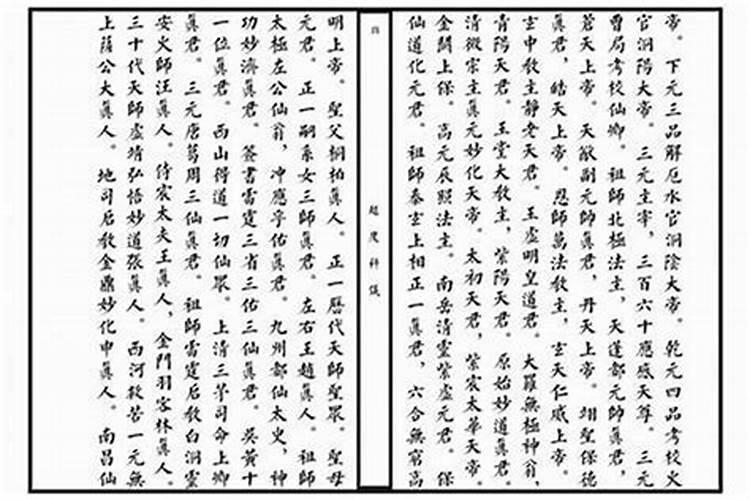 帝。下元三品解厄水官洞陰大帝。乾元四品考校火
官洞陽大帝。三元主宰，三百六十應感天尊。三元
曹局考校仙卿。祖師北極法主，天蓬都元師真君，
蒼天上帝。天猷副元帥真君，丹天上帝。翊聖保德
真君，皓天上帝。恩師萬法教主，玄天仁威上帝。
玄中教主靜老天君。玉虛明皇道君。大羅無極神翁，
青陽天君。玉堂大教主，紫陽天君。原始妙道真君。
清微宗主真元妙化天帝。太初天君，紫宸太華天帝。
金闕上保。高元辰照法主。南岳清靈紫虛元君。保
仙道化元君。祖師泰玄上相正一真君，六合無窮高
超度科儀
明上帝。聖父桐柏真人。正一曆代天師聖眾。聖母
元君。正一嗣系女三師真君。左右王趙真人。祖師
太極左公仙翁，沖應孚佑真君。九州都仙太史，神
功妙濟真君。簽書雷霆三省三佑三仙真君。吳黃十
一位真君。西山得道一切仙眾。上清三茅司命上卿
真君。三元唐葛周三仙真君。祖師雷霆启教白洞靈
安火師汪真人。侍宸太夫王真人，金門羽客林真人。
三十代天師虛靖弘悟妙道張真人。西河救苦一元無
上薩公大真人。地司启教金鼎妙化申真人。南昌仙